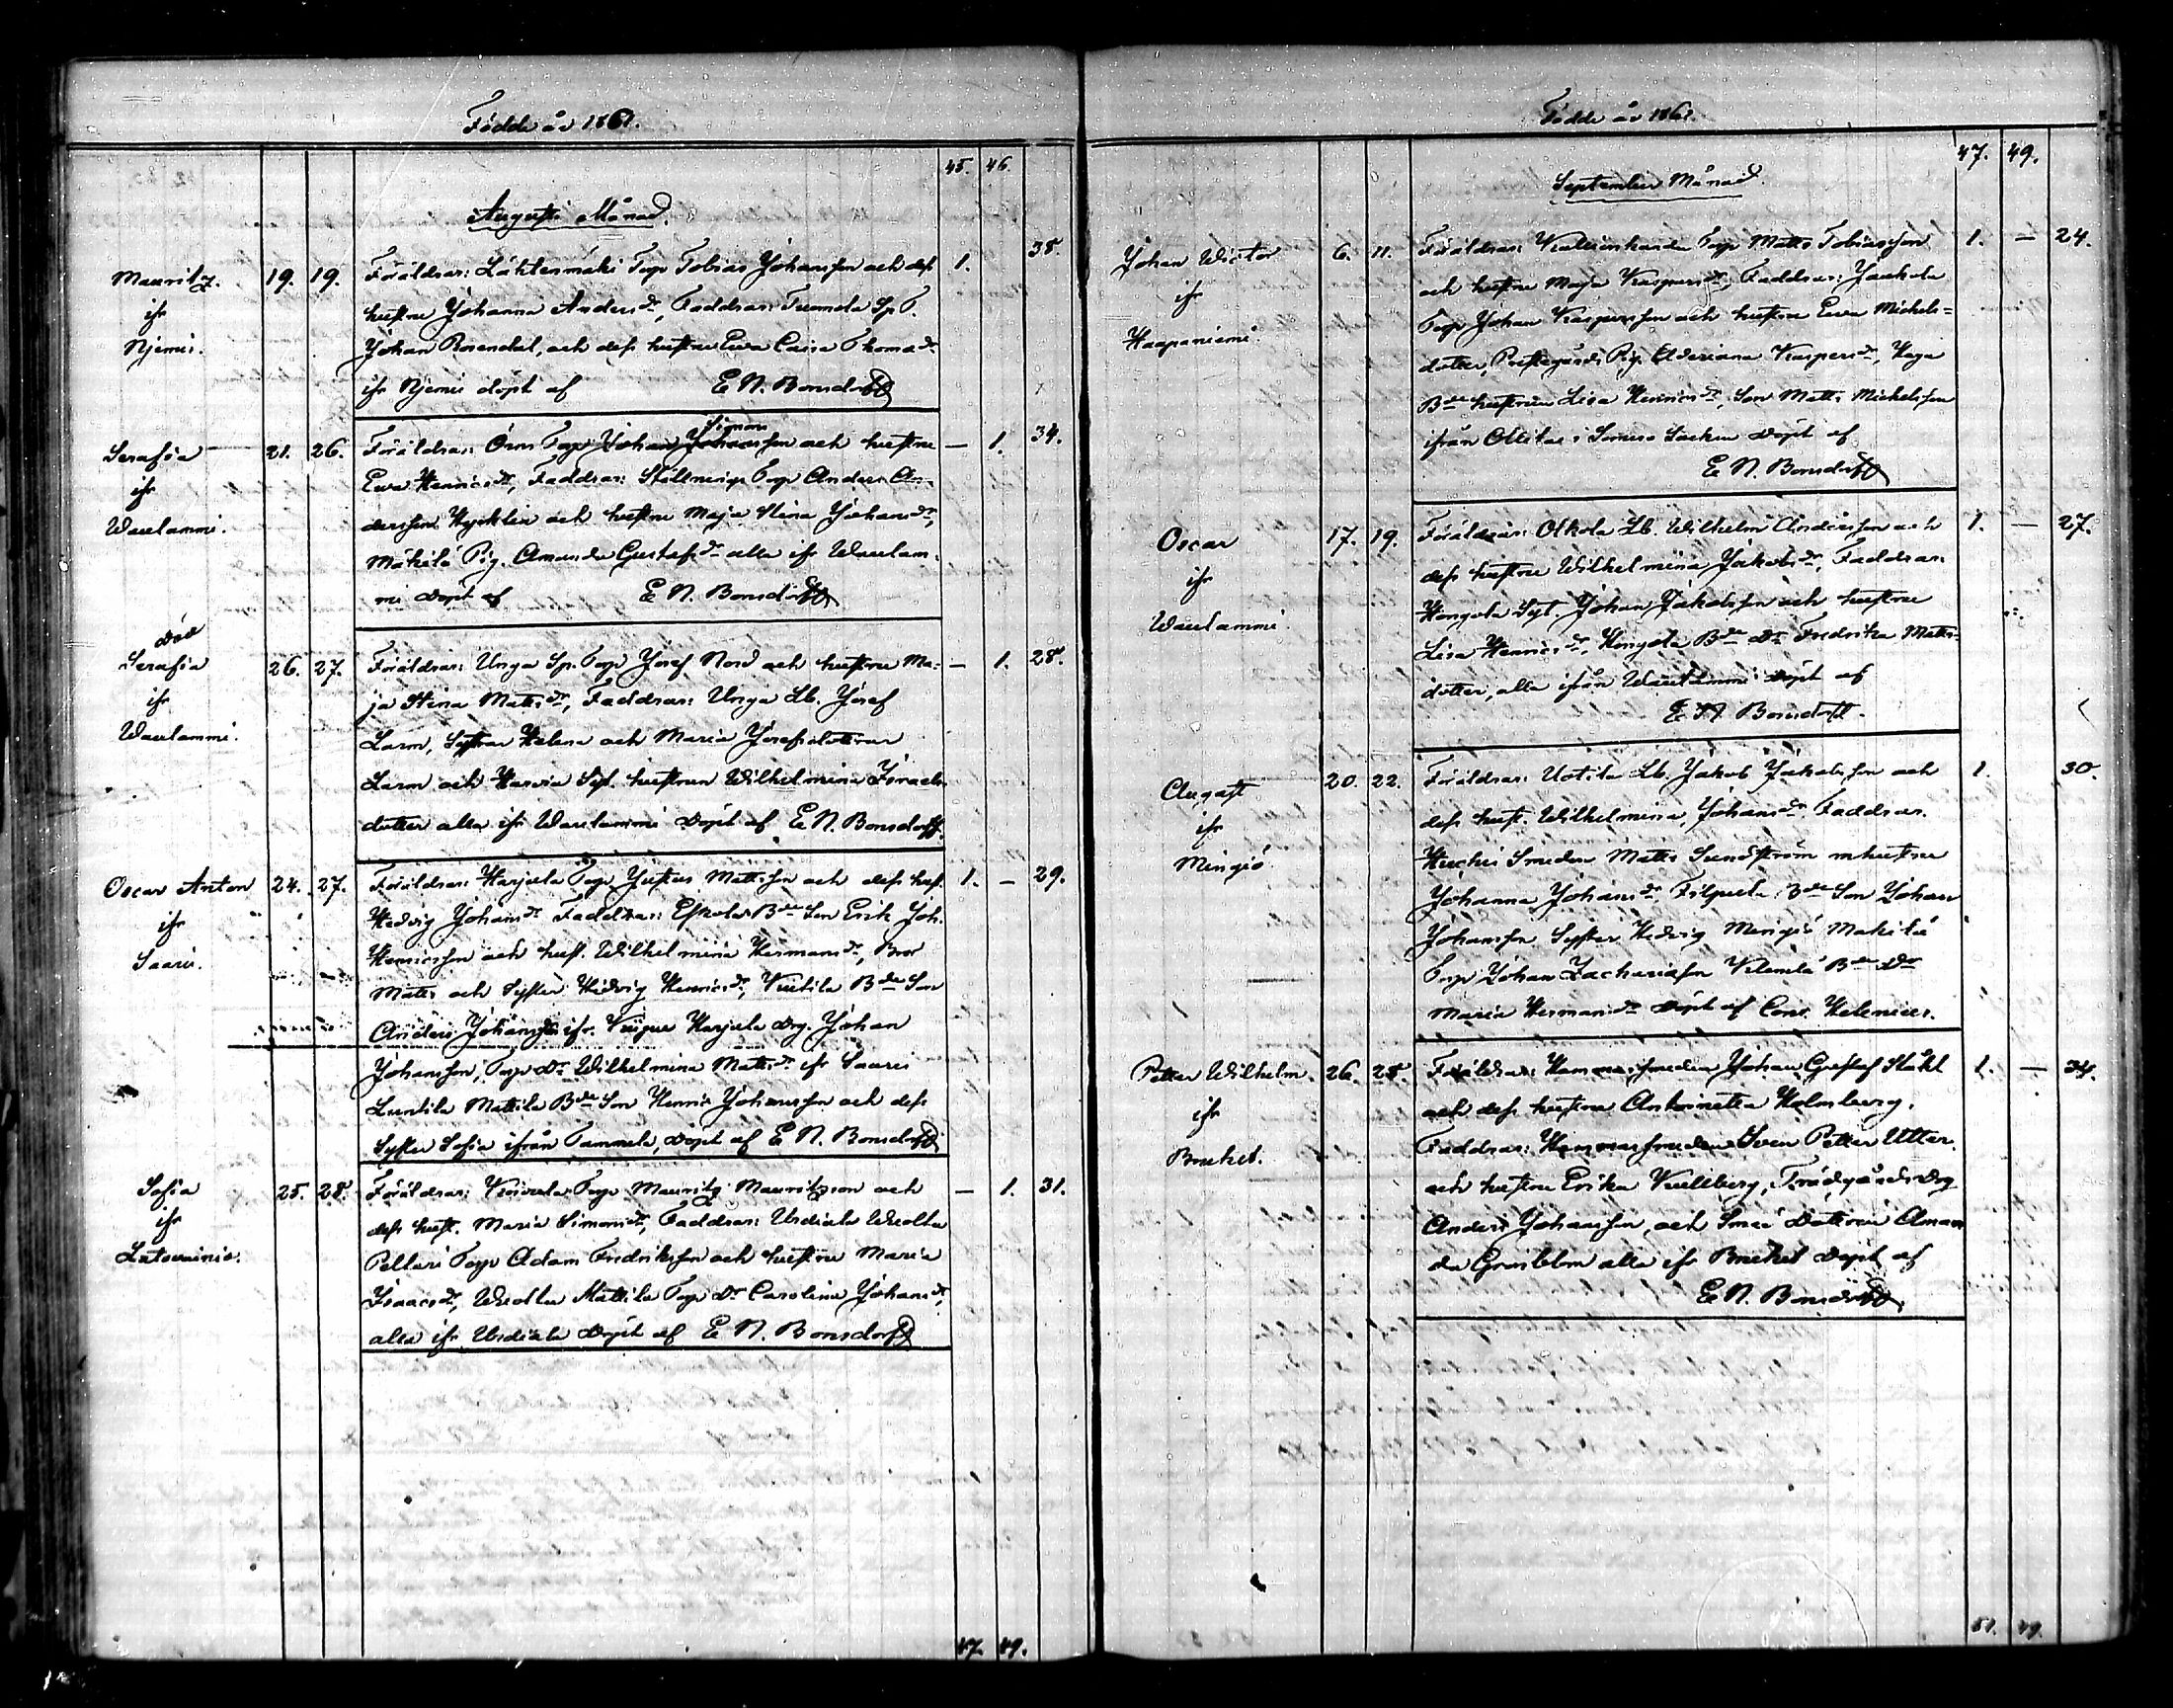 Födde år 1861.
45. 46.
Augusti Månad.
Mauritz.
ifr
Njemis.
19. 19.
Föräldrar: Lähtesmäki Torp Tobias Johansson och dess
hustru Johanna Andersdr, Faddrar: Tuomola Sp. T.
Johan Rosendal, och dess hustru Ewa Caisa Thomadr
ifr Njemis döpt af E N. Bonsdorff
1. 38.
Serafia
ifr
Waulammi.
21. 26.
Simons
Föräldrar: Torp Johan Johansson och hustru
Ewa Henricsdr, Faddrar: Torp Anders An-
dersson och hustru Maja Stina Johansdr,
Mäkilä Pig. Amanda Gustafsdr alla ifr Waulam-
mi döpt af E N. Bonsdorff
— 1. 34.
död
Serafia
ifr
Waulammi.
26. 27.
Föräldrar: Unga Sp. Torp Josef Nord och hustru Ma-
ja Stina Mattsdr, Faddrar: Unga Lb. Josef
Larm, Systrar Helena och Maria Josefsdottrar
Larm och Harvia Syt. hustrun Wilhelmina Israels
dotter alla ifr Waulammi döpt af E N. Bonsdorff.
— 1. 28.
Oscar Anton
ifr
Saaris.
24. 27.
Föräldrar: Harjula Torp Justus Mattsson och dess hust.
Hedvig Johansdr Faddrar: Eskola Bde Son Erik Joh.
Henricsson och hust. Wilhelmina Hermansdr, Bror
Matts och Syster Hedvig Henricsdr, Bde Son
Anders Johansson ifr. Harjula Drg. Johan
Johansson, Torp Dr Wilhelmina Mattsdr ifr Saaris
Mattila Bde Son Henric Johansson och dess
Syster Sofia ifrån Tammela, döpt af E N. Bonsdorff
1. — 29.
Sofia
ifr
25. 28.
Föräldrar: Torp Mauritz Mauritzson och
dess hust. Maria Simonsdr, Faddrar: Urdiala
Torp Adam Fredriksson och hustru Maria
Isaacsdr, Mattila Torp Dr Carolina Johansdr,
alla ifr Urdiala döpt af E N. Bonsdorff
— 1. 31.
47. 49.
Födde år 1861.
47. 49.
September Månad.
Johan Wictor
ifr
Haapaniemi.
6. 11.
Föräldrar: Torp Matts Tobiasson
och hustru Maja Kaspersdr, Faddrar: Jaakola
Torp Johan Kaspersson och hustru Ewa Michels-
dotter, Prestegårds Pig. Kaspersdr,
Bde hustrun Lisa Henricsdr, Son Matts Michelsson
ifrån i Somero Socken döpt af
E N. Bonsdorff
1. — 24.
Oscar
ifr
Waulammi.
17. 19.
Föräldrar: Olkola Lb. Wilhelm Andersson och
dess hustru Wilhelmina Jakobsdr, Faddrar:
Hongola Syt. Johan Jakobsson och hustru
Lisa Henricsdr, Hongola Bde Dr Fredrika Matts-
dotter, alla ifrån Waulammi döpt af
E N Bonsdorff.
1. — 27.
August
ifr
Mingiö.
20. 22.
Föräldrar: Uotila Lb. Jakob Jakobsson och
dess hust. Wilhelmina, Johansdr Faddrar:
Smeden Matts Sundström m hustru
Johanna Johansdr, Bde Son Johan
Johansson Syster Hedvig Mengiö Mäkilä
Torp Johan Zachariasson Bde Dr
Maria Hermansdr döpt af Cons. Helenius.
1. 30.
Petter Wilhelm.
ifr
Bruket.
26. 28.
Föräldrar: Hammarsmeden Johan Gustaf Ståhl
och dess hustru Antoinetta Holmberg.
Faddrar: Hammarsmeden Sven Petter Utter
och hustru Erika Kullberg, Trädgårds Drg
Anders Johansson, och Smed Dottren Aman
da alla ifr Bruket döpt af
E N. Bonsdorff
1. — 34.
51. 49.